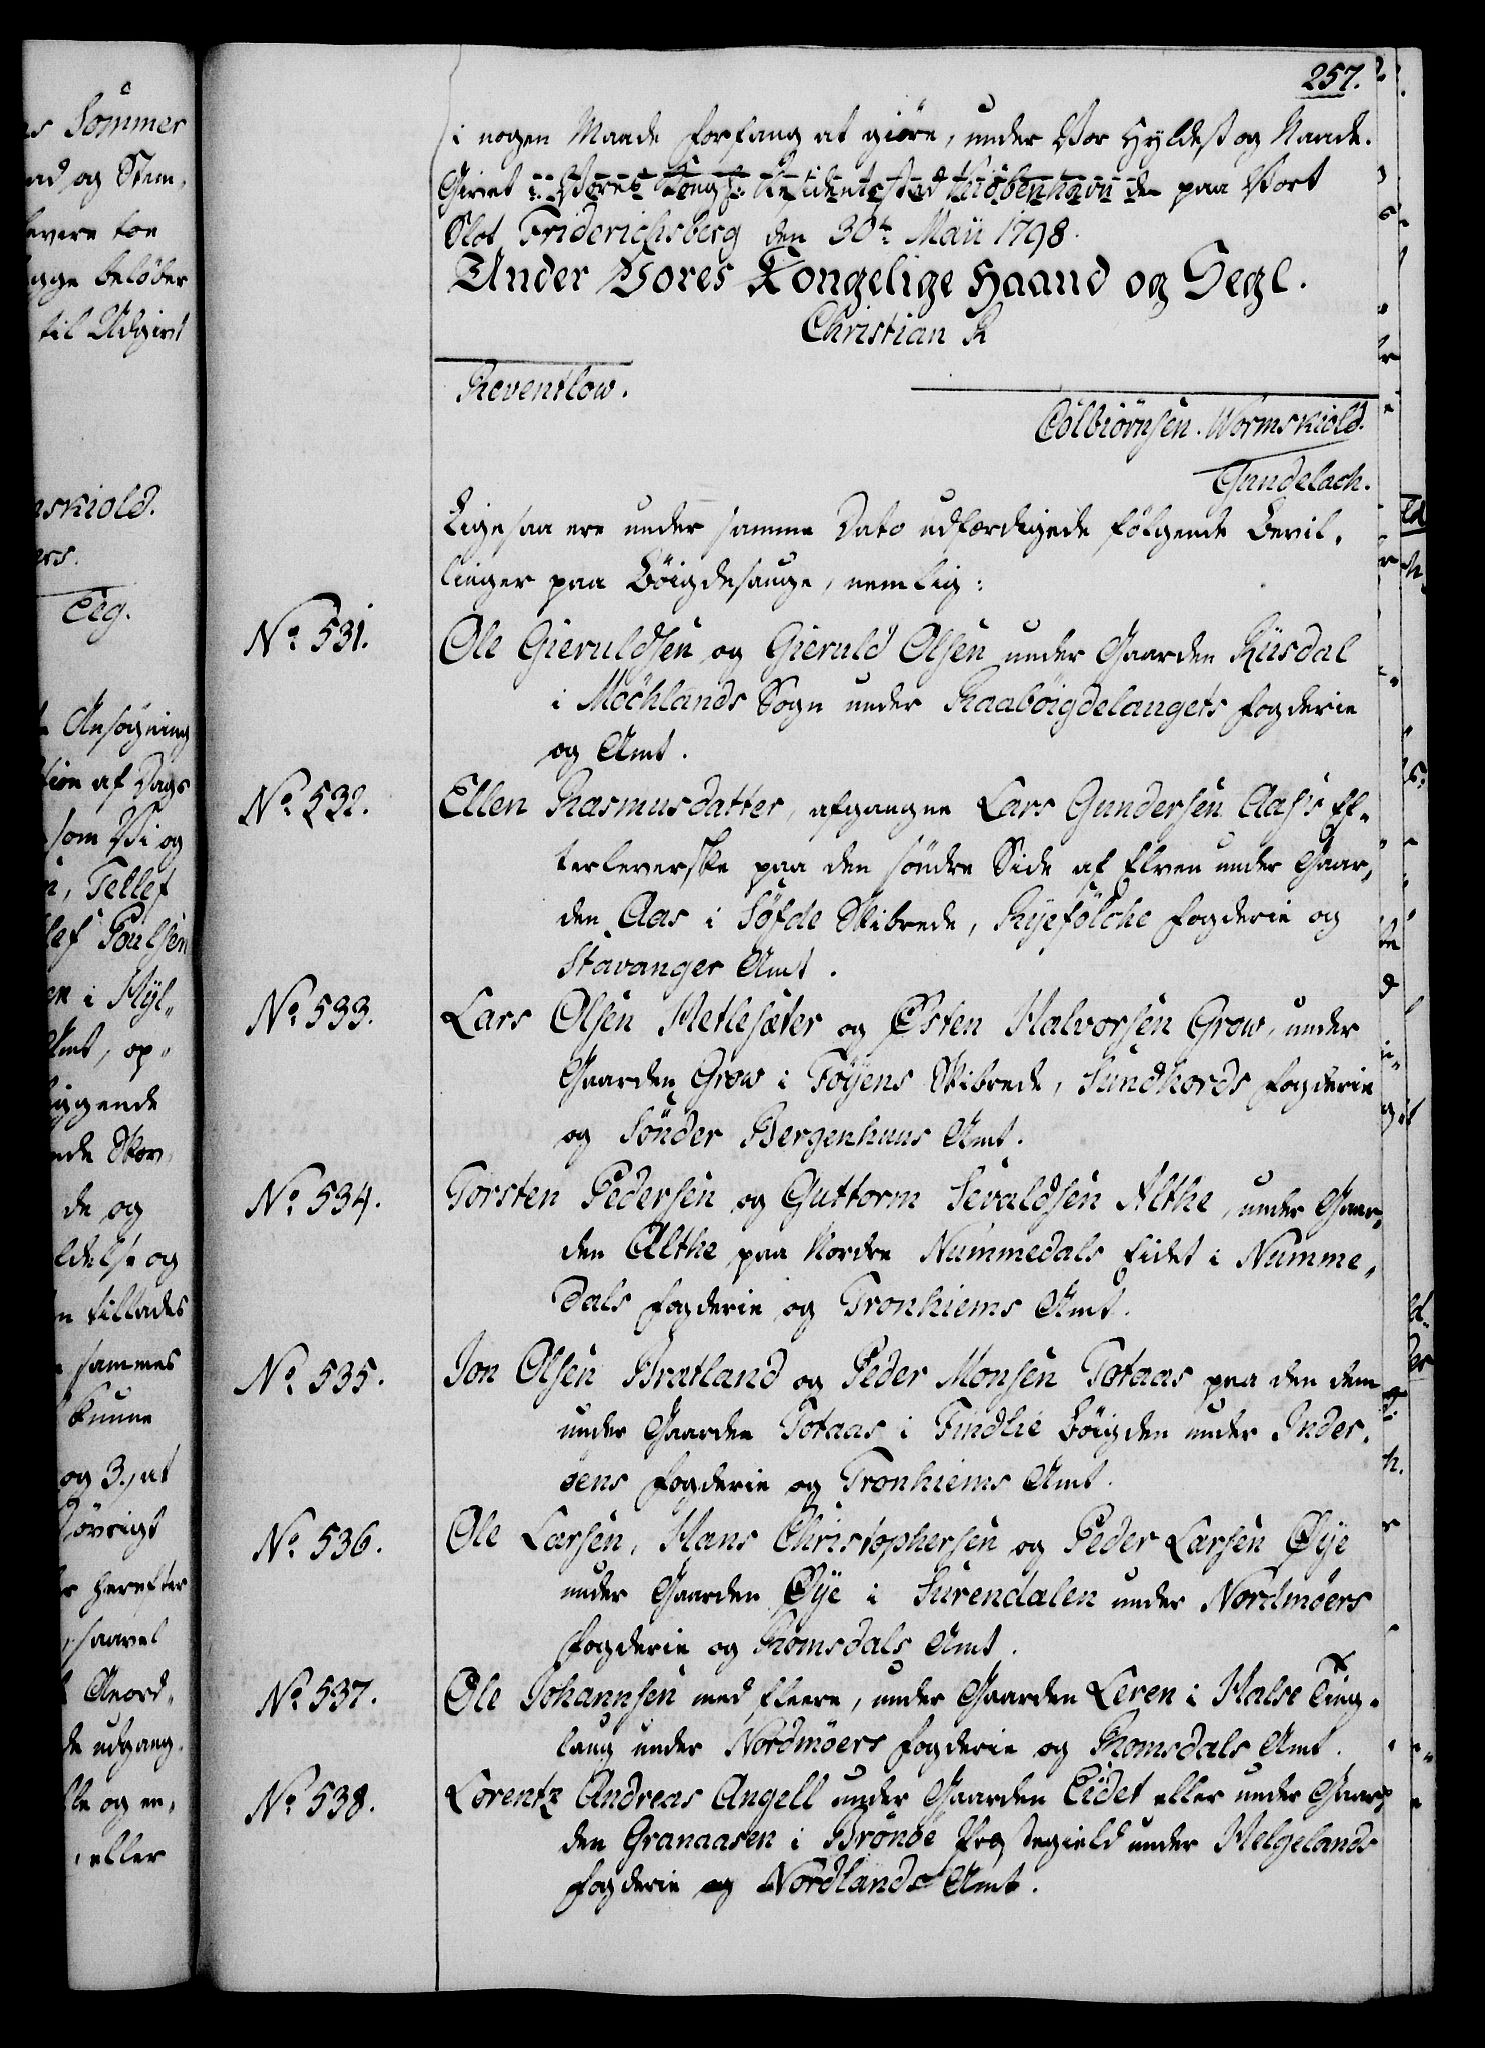 257.
i nogen Maade forfang at giøre, under Vor Hyldest og Naade.
Givet i Vores Kongl: Residentsstad Kiøbenhavn den paa Vort
Slot Friderichsberg den 30te Maii 1798.
Under Vores Kongelige Haand og Segl.
Christian R
Reventlow.
Colbiørnsen. Wormskiold.
Gundelach.
Ligesaa ere under samme Dato udfærdigede følgende Bevil,
linger paa Bøigdesauge, nemlig:
No 531. Ole Gieruldsen og Gieruld Olsen under Gaarden Riisdal
i Mochlands Sogn under Raabøigdelaugets Fogderie
og Amt.
No 532. Ellen Rasmusdatter, afgangne Lars Gundersen Aases Ef-
terleverske paa den søndre Side af Elven under Gaar,
den Aas i Søfde Skibrede, Ryefølche Fogderie og
Stavanger Amt.
No 533. Lars Olsen Hetlesæter og Østen Halvorsen Grow, under
Gaarden Grow i Føyens Skibrede, Sundhords Fogderie
og Sønder Bergenhuus Amt.
No 534. Torsten Pedersen og Guttorm Sevaldsen Althe, under Gaar,
den Althe paa Nordre Nummedals Eidet i Numme,
dals Fogderie og Tronhiems Amt.
No 535. Jon Olsen Bratland og Peder Monsen Totaas paa den dem
under Gaarden Totaas i Findlie Bøigden under Inder,
øens Fogderie og Tronhiems Amt.
No 536. Ole Larsen, Hans Christophersen og Peder Larsen Øye
under Gaarden Øye i Surendalen under Nordmøers
Fogderie og Romsdals Amt.
No 537. Ole Johannsen med fleere, under Gaarden Leren i Halse Ting-
laug under Nordmøers Fogderie og Romsdals Amt.
No 538. Lorentz Andreas Angell under Gaarden Eidet eller under Gaar,
den Granaasen i Brønøe Præstegield under Helgelands
Fogderie og Nordlands Amt.